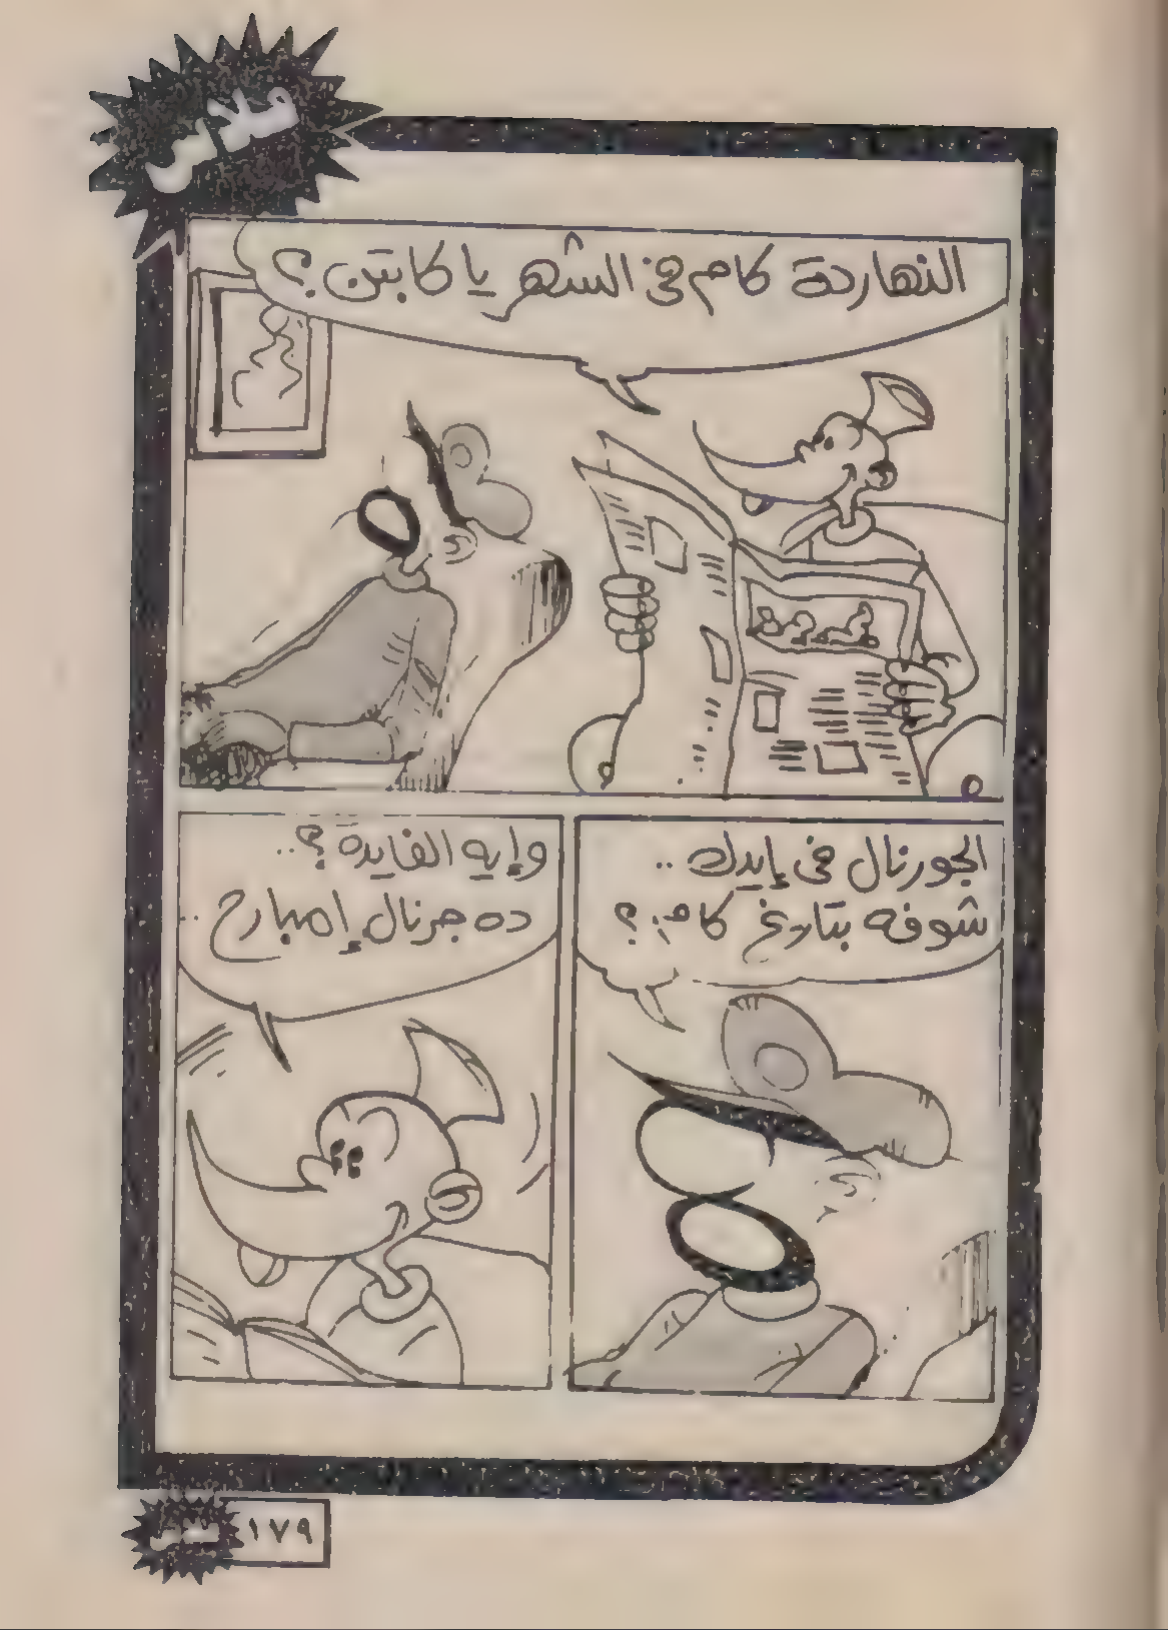 فلاش
النهاردة كام فى الشهر يا كابتن؟
الجورنال فى إيدك ..
شوفه بتاريخ كام؟
وإيه الفايدة؟..
ده جرنال إمبارح ..
١٧٩